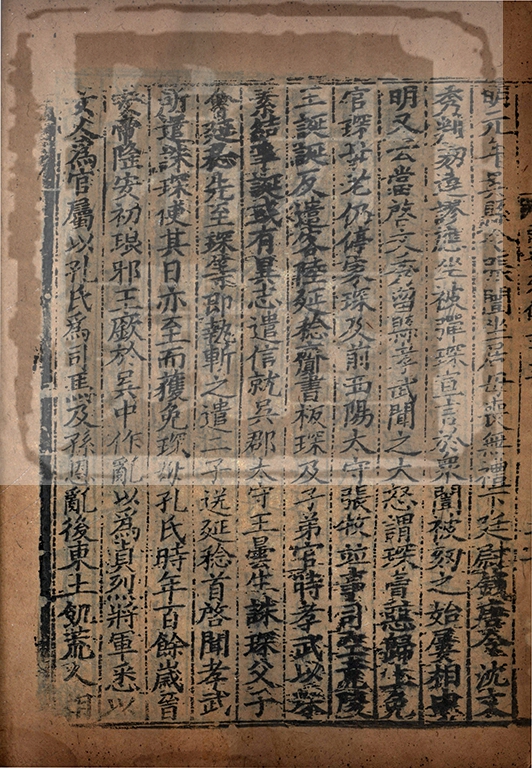 明元年吳縣令張闓坐居母喪無禮下廷尉錢唐令沈文
秀判劾違謬應坐被彈琛宣言於眾闓被劾之始屢相申
明又云當啓文秀留縣孝武聞之大怒謂琛賣惡歸上免
官琛母老仍停家琛及前西陽太守張牧並事司空竟陵
王誕誕反遣客陸延稔齎書板琛及子弟官時孝武以琛
素結事誕或有異志遣信就吳郡太守王曇生誅琛父子
會延稔先至琛等即執斬之遣二子送延稔首啓聞孝武
所遣誅琛使其日亦至而獲免琛母孔氏時年百餘歲晉
安帝隆安初琅邪王廞於吳中作亂以爲貞烈將軍悉以
女人爲官屬以孔氏爲司馬及孫恩亂後東土飢荒人相